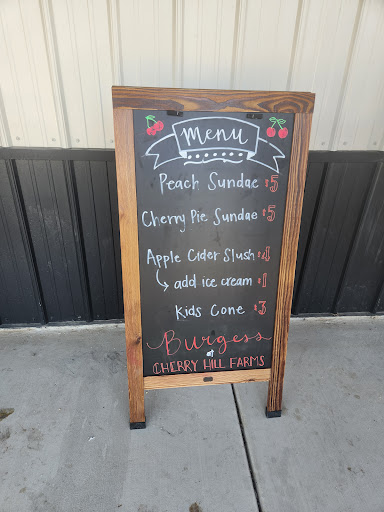 Menu
Peach Sundae $5
Cherry Pie Sundae $5
Apple Cider Slush $4
add ice cream $1
Kids Cone $3
Burgess
at
CHERRY HILL FARMS